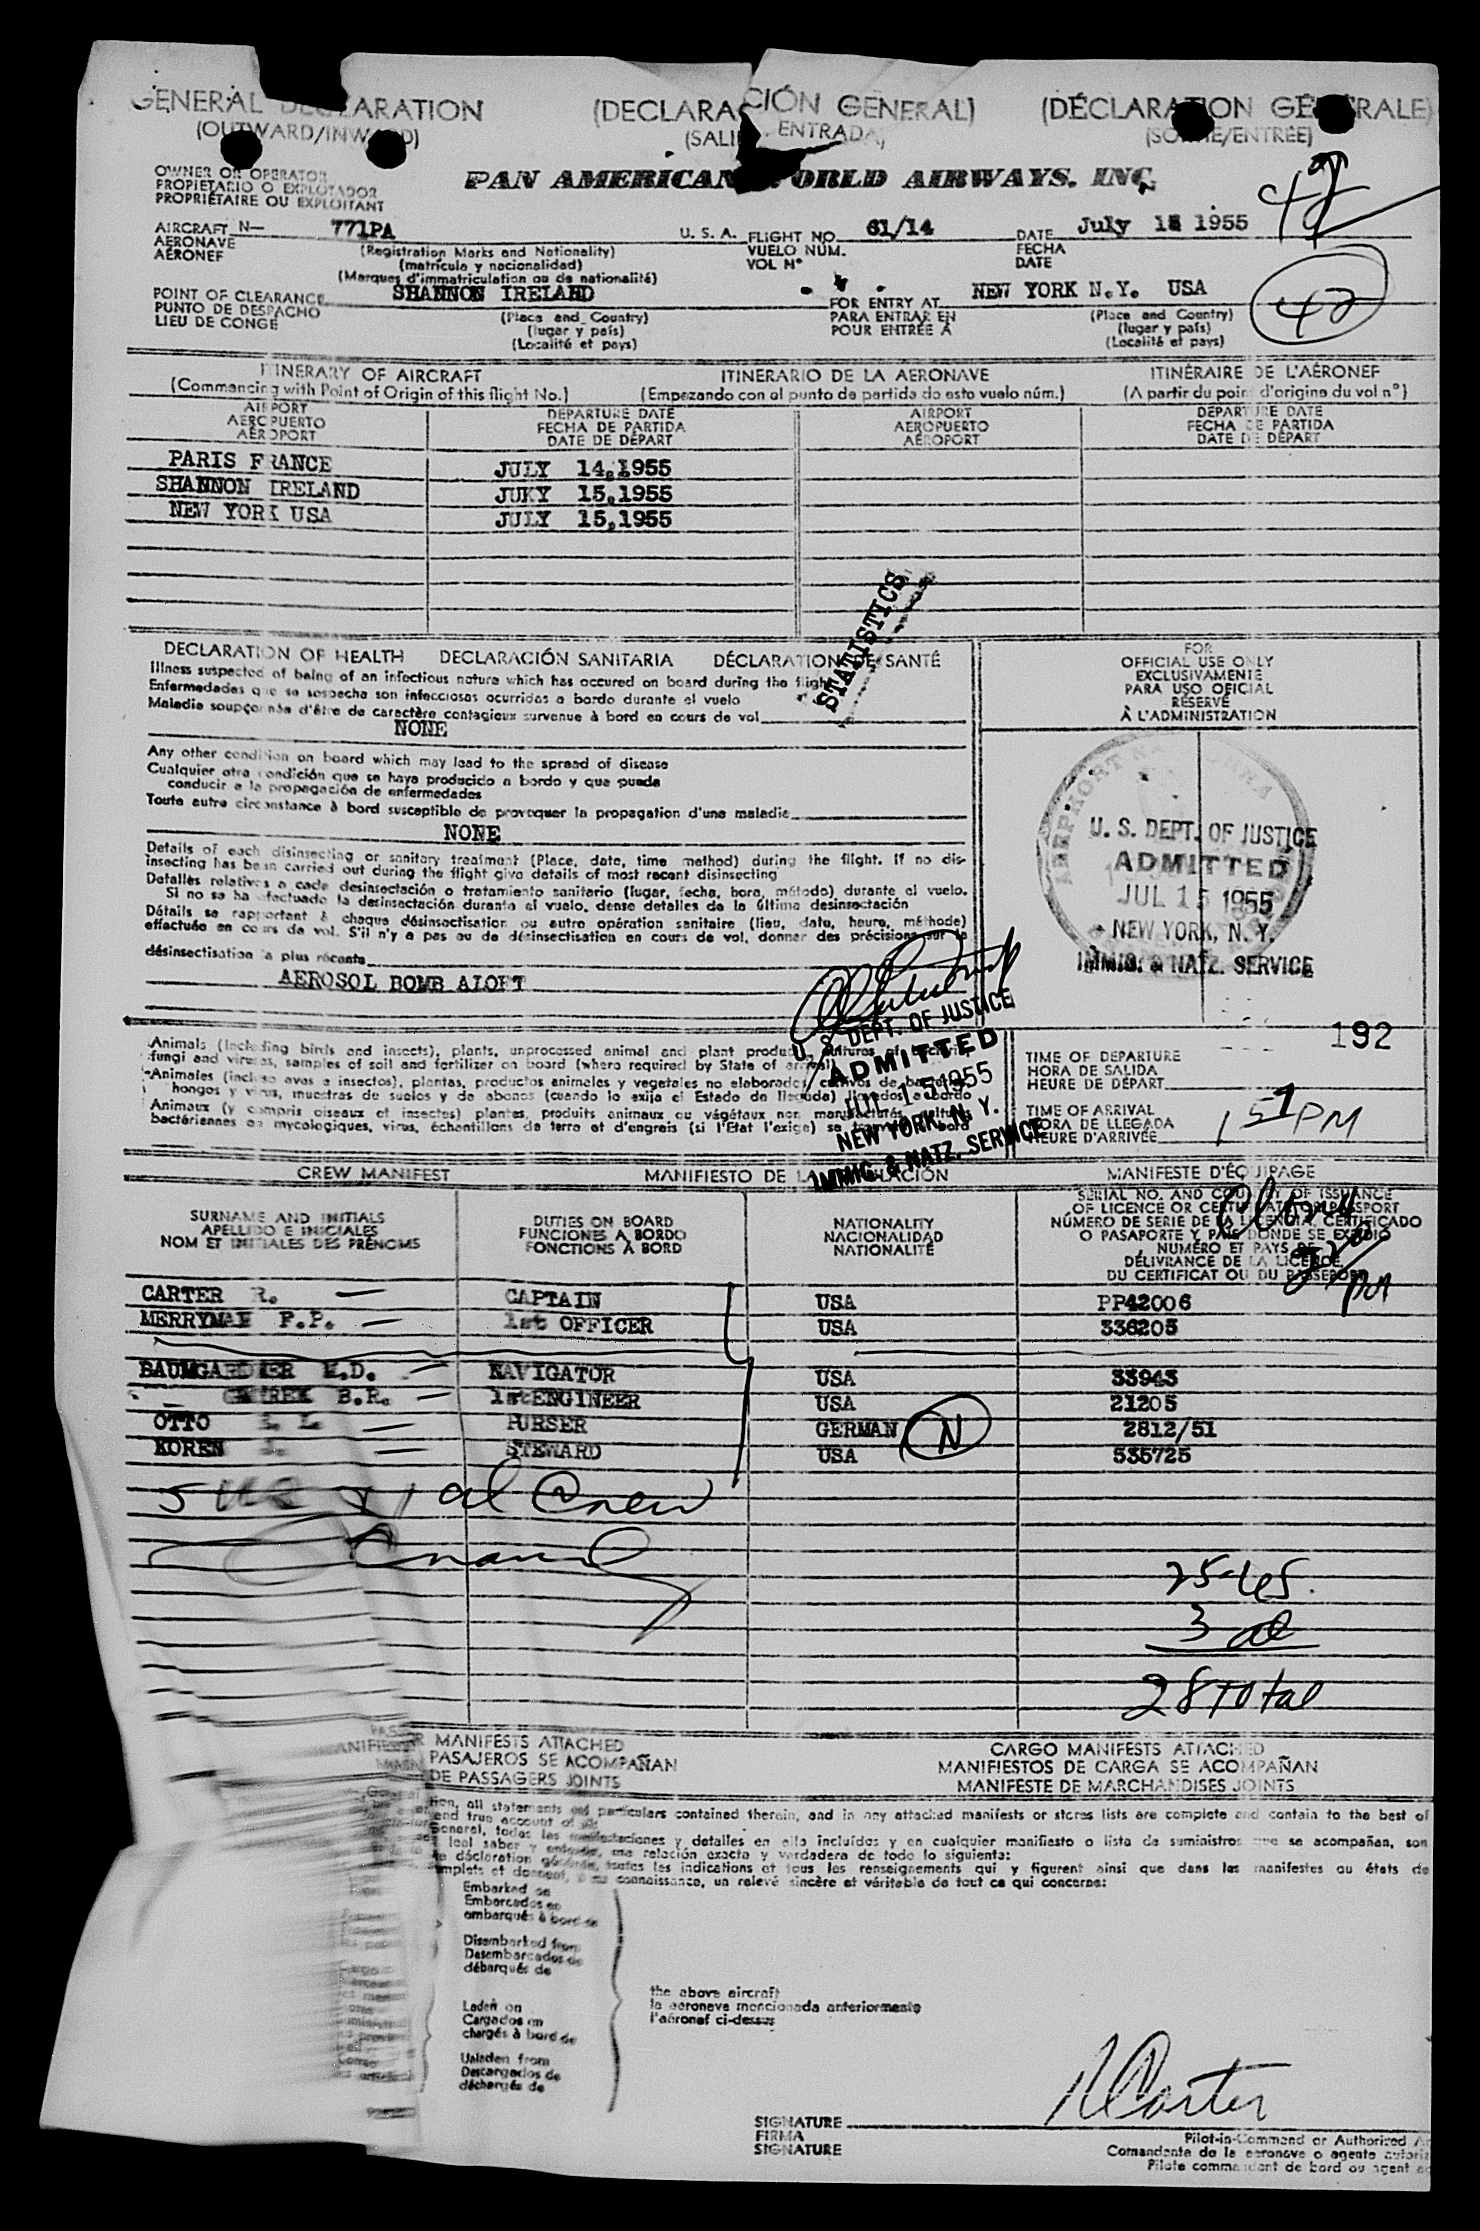 GENERAL DECLARATION (DECLARACIÓN GENERAL) (DÉCLARATION GÉNÉRALE)
(OUTWARD/INWARD) (SALIDA ENTRADA) (SORTIE/ENTRÉE)
OWNER OR OPERATOR
PROPIETARIO O EXPLOTADOR
PROPRIÉTAIRE OU EXPLOITANT
PAN AMERICAN WORLD AIRWAYS, INC.
AIRCRAFT N— 771PA U. S. A. FLIGHT NO. 61/14 DATE July 15 1955
AERONAVE (Registration Marks and Nationality) VUELO NÚM. FECHA
AÉRONEF (matrícula y nacionalidad) VOL Nº DATE
(Marques d'immatriculation ou de nationalité)
POINT OF CLEARANCE SHANNON IRELAND FOR ENTRY AT NEW YORK N.Y. USA
PUNTO DE DESPACHO (Place and Country) PARA ENTRAR EN (Place and Country)
LIEU DE CONGÉ (lugar y país) POUR ENTRÉE A (lugar y país)
(Localité et pays) (Localité et pays)
42
ITINERARY OF AIRCRAFT ITINERARIO DE LA AERONAVE ITINÉRAIRE DE L'AÉRONEF
(Commencing with Point of Origin of this flight No.) (Empezando con el punto de partida de este vuelo núm.) (A partir du point d'origine du vol nº)
AIRPORT DEPARTURE DATE AIRPORT DEPARTURE DATE
AEROPUERTO FECHA DE PARTIDA AEROPUERTO FECHA DE PARTIDA
AÉROPORT DATE DE DÉPART AÉROPORT DATE DE DÉPART
PARIS FRANCE JULY 14,1955
SHANNON IRELAND JUKY 15,1955
NEW YORK USA JULY 15,1955
STATISTICS
DECLARATION OF HEALTH DECLARACIÓN SANITARIA DÉCLARATION DE SANTÉ
Illness suspected of being of an infectious nature which has occured on board during the flight
Enfermedades que se sospecha son infecciosas ocurridas a bordo durante el vuelo
Maladie soupçonnée d'être de caractère contagieux survenue à bord en cours de vol
NONE
Any other condition on board which may lead to the spread of disease
Cualquier otra condición que se haya producido a bordo y que pueda
conducir a la propagación de enfermedades
Toute autre circonstance à bord susceptible de provoquer la propagation d'une maladie
NONE
Details of each disinsecting or sanitary treatment (Place, date, time method) during the flight. If no dis-
insecting has been carried out during the flight give details of most recent disinsecting
Detalles relativos a cada desinsectación o tratamiento sanitario (lugar, fecha, hora, método) durante el vuelo.
Si no se ha efectuado la desinsectación durante el vuelo, dense detalles de la última desinsectación
Détails se rapportant à chaque désinsectisation ou autre opération sanitaire (lieu, date, heure, méthode)
effectuée en cours de vol. S'il n'y a pas eu de désinsectisation en cours de vol, donner des précisions sur la
désinsectisation la plus récente
AEROSOL BOMB ALOFT
FOR
OFFICIAL USE ONLY
EXCLUSIVAMENTE
PARA USO OFICIAL
RÉSERVÉ
À L'ADMINISTRATION
U. S. DEPT. OF JUSTICE
ADMITTED
JUL 15 1955
NEW YORK, N. Y.
IMMIG. & NATZ. SERVICE
U. S. DEPT. OF JUSTICE
ADMITTED
JUL 15 1955
NEW YORK, N. Y.
IMMIG. & NATZ. SERVICE
Animals (including birds and insects), plants, unprocessed animal and plant products, cultures of bacteria,
fungi and viruses, samples of soil and fertilizer on board (where required by State of arrival)
Animales (incluso aves e insectos), plantas, productos animales y vegetales no elaborados, cultivos de bacterias,
hongos y virus, muestras de suelos y de abonos (cuando lo exija el Estado de llegada) llevados a bordo
Animaux (y compris oiseaux et insectes) plantes, produits animaux ou végétaux non manufacturés, cultures
bactériennes ou mycologiques, virus, échantillons de terre et d'engrais (si l'Etat l'exige) se trouvant à bord
192
TIME OF DEPARTURE
HORA DE SALIDA
HEURE DE DÉPART
TIME OF ARRIVAL
HORA DE LLEGADA
HEURE D'ARRIVÉE
1 51 PM
CREW MANIFEST MANIFIESTO DE LA TRIPULACIÓN MANIFESTE D'ÉQUIPAGE
SURNAME AND INITIALS
APELLIDO E INICIALES
NOM ET INITIALES DES PRÉNOMS
DUTIES ON BOARD
FUNCIONES A BORDO
FONCTIONS À BORD
NATIONALITY
NACIONALIDAD
NATIONALITÉ
SERIAL NO. AND COUNTRY OF ISSUANCE
OF LICENCE OR CERTIFICATE OR PASSPORT
NÚMERO DE SERIE DE LA LICENCIA, CERTIFICADO
O PASAPORTE Y PAÍS DONDE SE EXPIDIÓ
NUMÉRO ET PAYS DE
DÉLIVRANCE DE LA LICENCE,
DU CERTIFICAT OU DU PASSEPORT
CARTER R. CAPTAIN USA PP42006
MERRYMAN F.P. 1st OFFICER USA 336205
BAUMGARDNER E.D. NAVIGATOR USA 33943
B.R. 1st ENGINEER USA 21205
OTTO PURSER GERMAN N 2812/51
KOREN STEWARD USA 535725
al Crew
25
3 al
28 total
PASSENGER MANIFESTS ATTACHED CARGO MANIFESTS ATTACHED
PASAJEROS SE ACOMPAÑAN MANIFIESTOS DE CARGA SE ACOMPAÑAN
DE PASSAGERS JOINTS MANIFESTE DE MARCHANDISES JOINTS
all statements and particulars contained therein, and in any attached manifests or stores lists are complete and contain to the best of
and true account of
General, todas las manifestaciones y detalles en ella incluídos y en cualquier manifiesto o lista de suministros que se acompañan, son
leal saber y entender, una relación exacta y verdadera de todo lo siguiente:
déclaration générale, toutes les indications et tous les renseignements qui y figurent ainsi que dans les manifestes ou états de
complets et donnent, à ma connaissance, un relevé sincère et véritable de tout ce qui concerne:
Embarked on
Embarcados en
embarqués à bord de
Disembarked from
Desembarcados de
débarqués de
the above aircraft
la aeronave mencionada anteriormente
l'aéronef ci-dessus
Laden on
Cargados en
chargés à bord de
Unladen from
Descargados de
déchargés de
R Carter
SIGNATURE
FIRMA
SIGNATURE
Pilot-in-Command or Authorized
Comandante de la aeronave o agente
Pilote commandant de bord ou agent